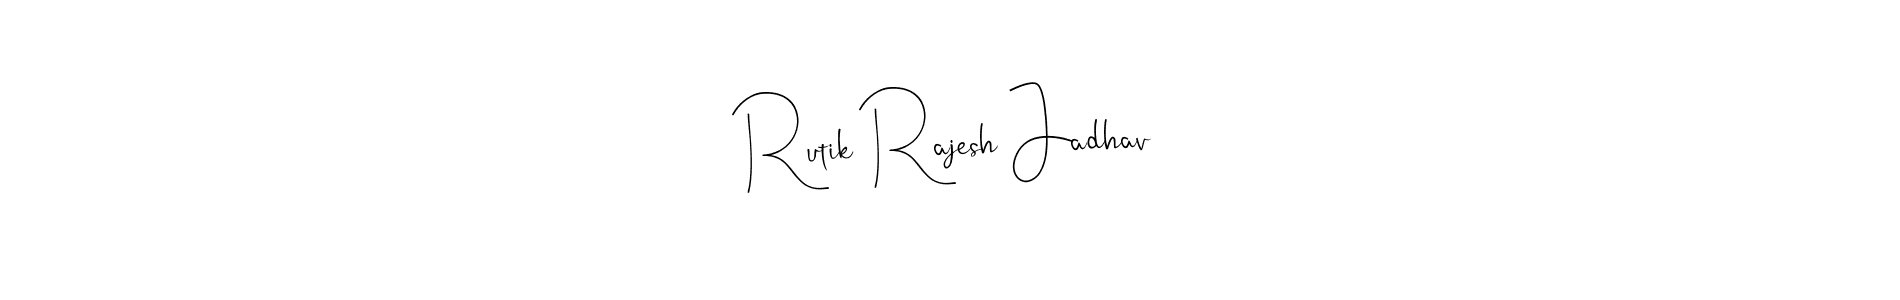 Rutik Rajesh Jadhav